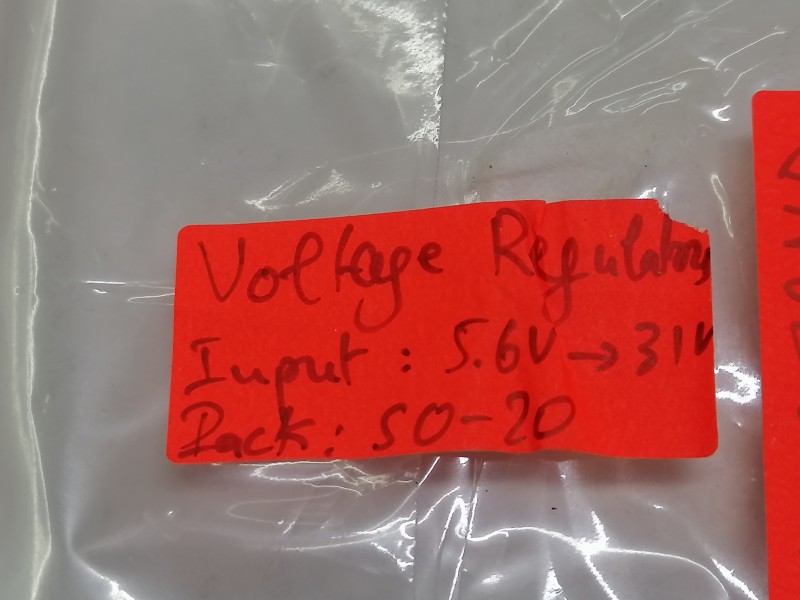 Voltage Regulators
Input: 5.6V → 31V
Pack: SO-20